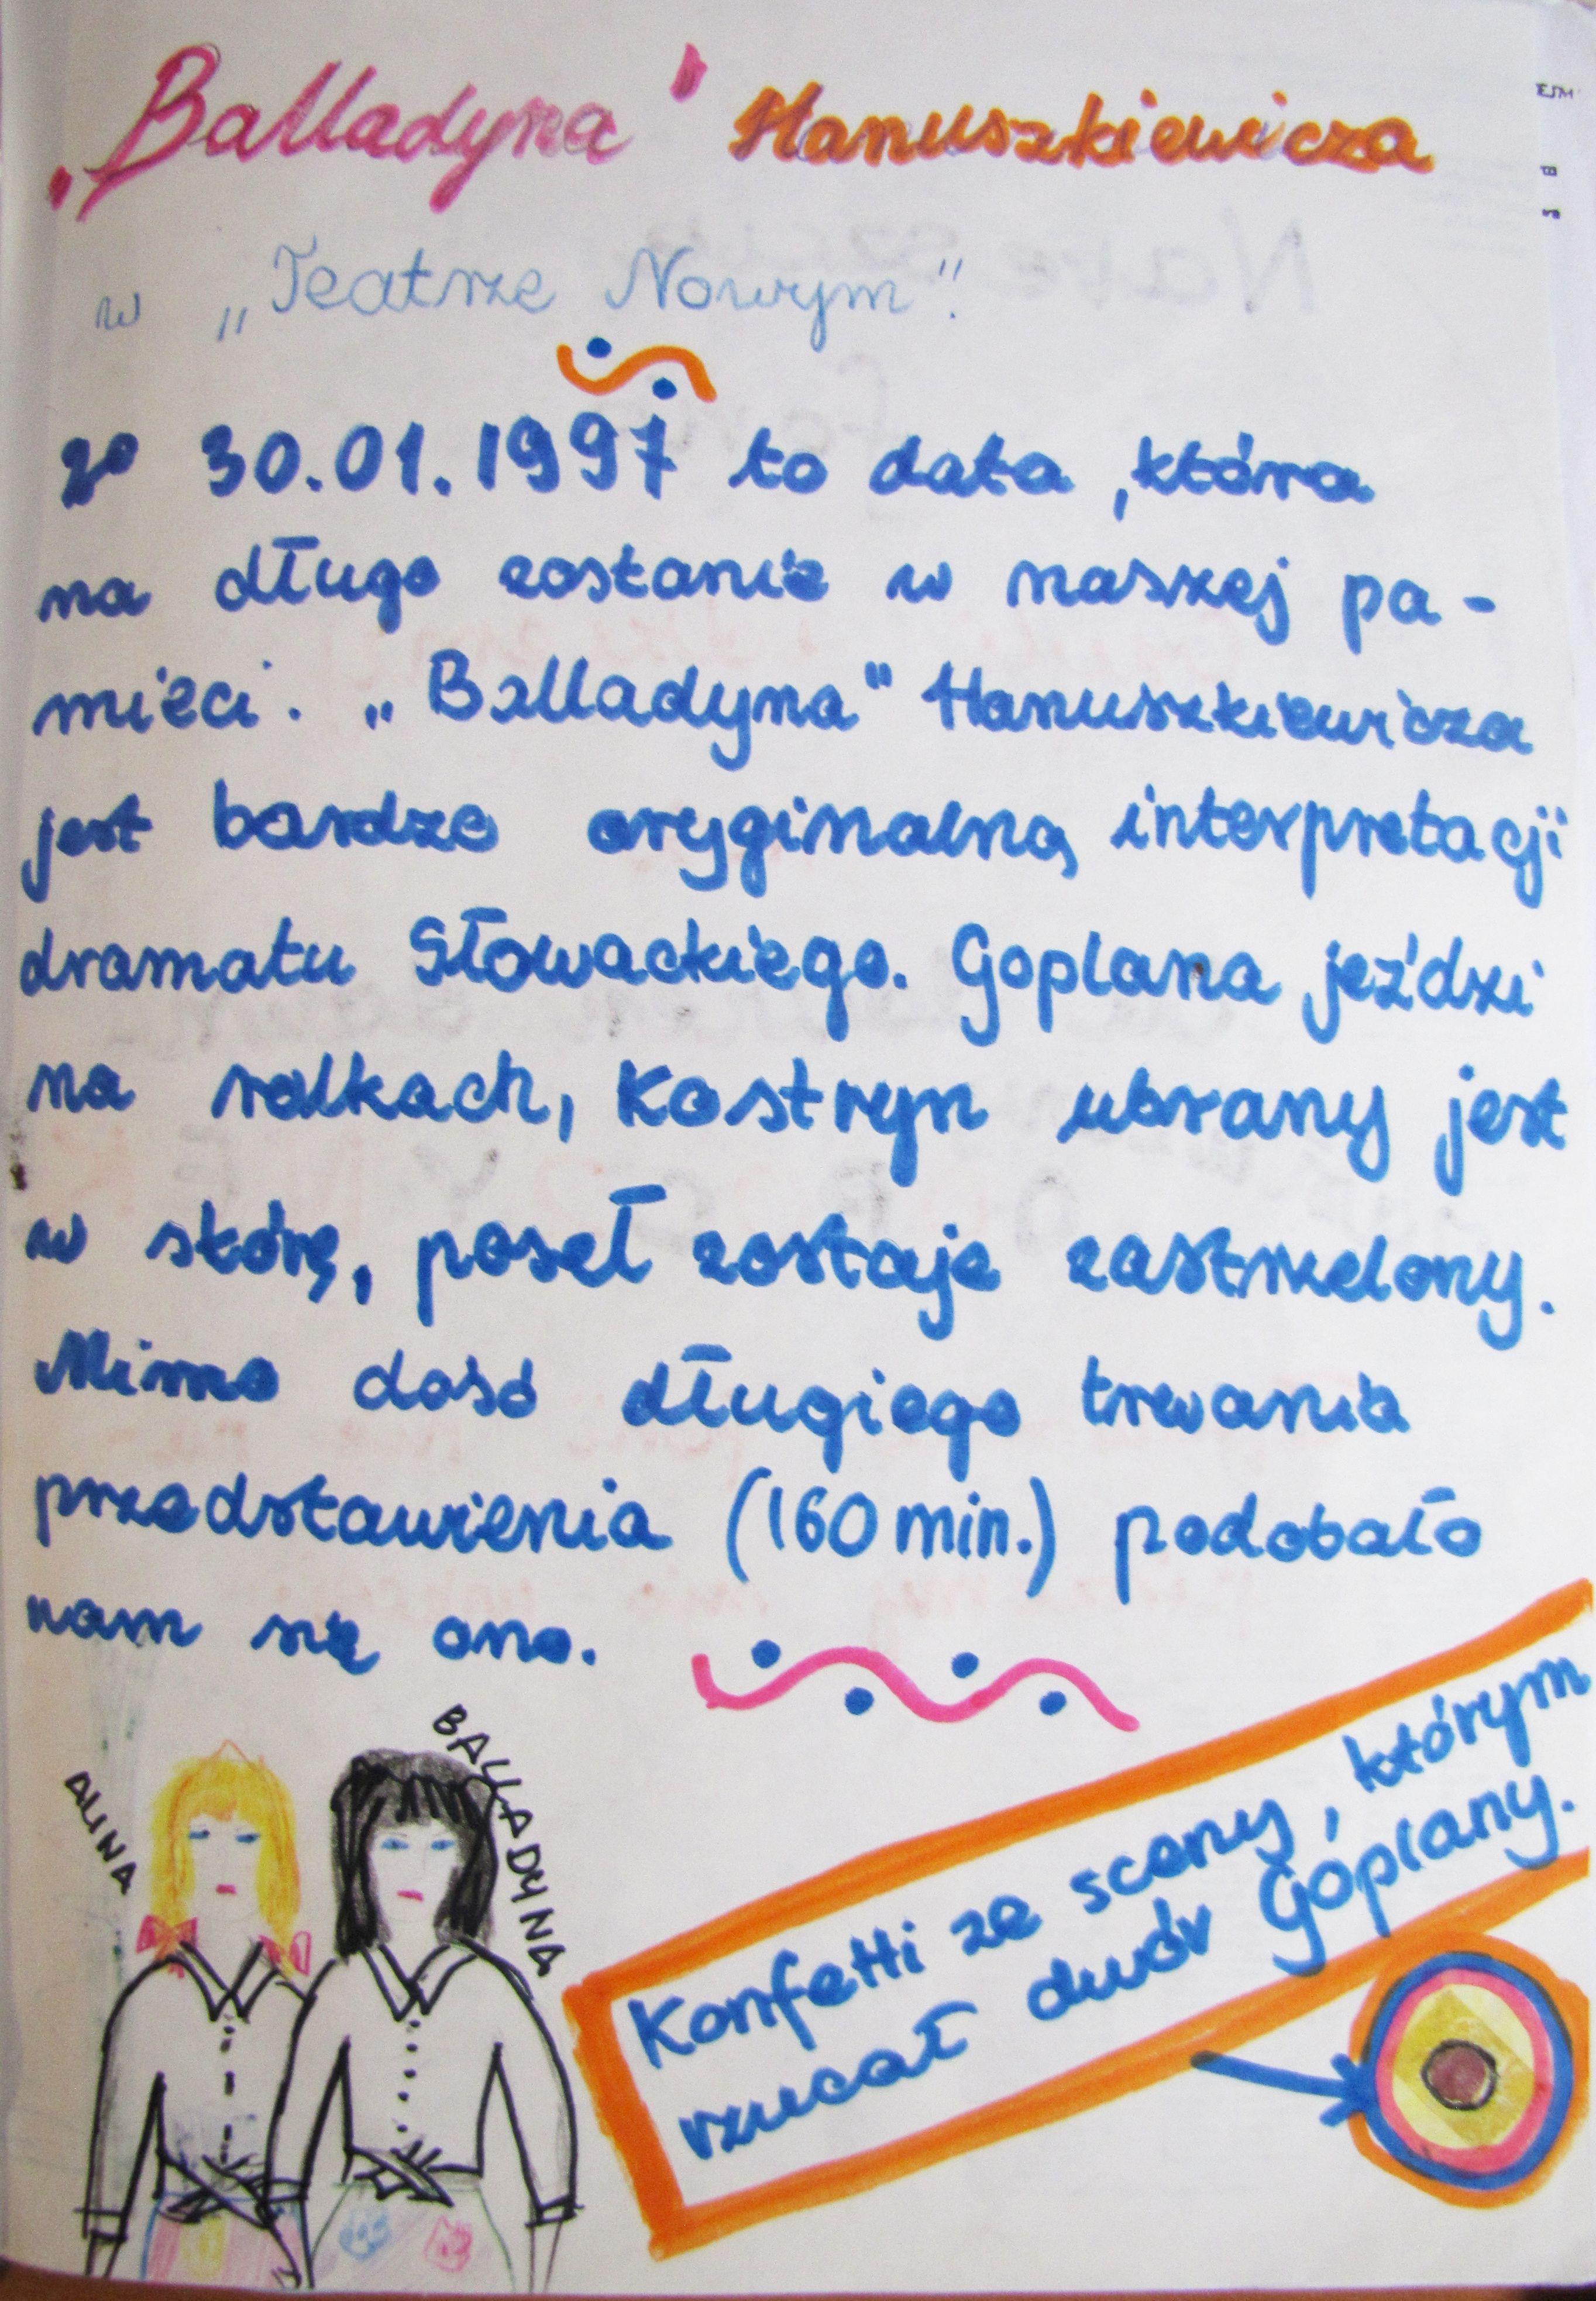 „Balladyna" Hanuszkiewicza
w „Teatrze Nowym".
30.01.1997 to data, która
na długo zostanie w naszej pa-
mięci. „Balladyna" Hanuszkiewicza
jest bardzo oryginalną interpretacji
dramatu Słowackiego. Goplana jeździ
na rolkach, Kostryn ubrany jest
w skórę, poseł zostaje zastrzelony.
Mimo dość długiego trwania
przedstawienia (160 min.) podobało
nam się ono.
ALINA
BALLADYNA
Konfetti ze sceny, którym
rzucał dwór Goplany.